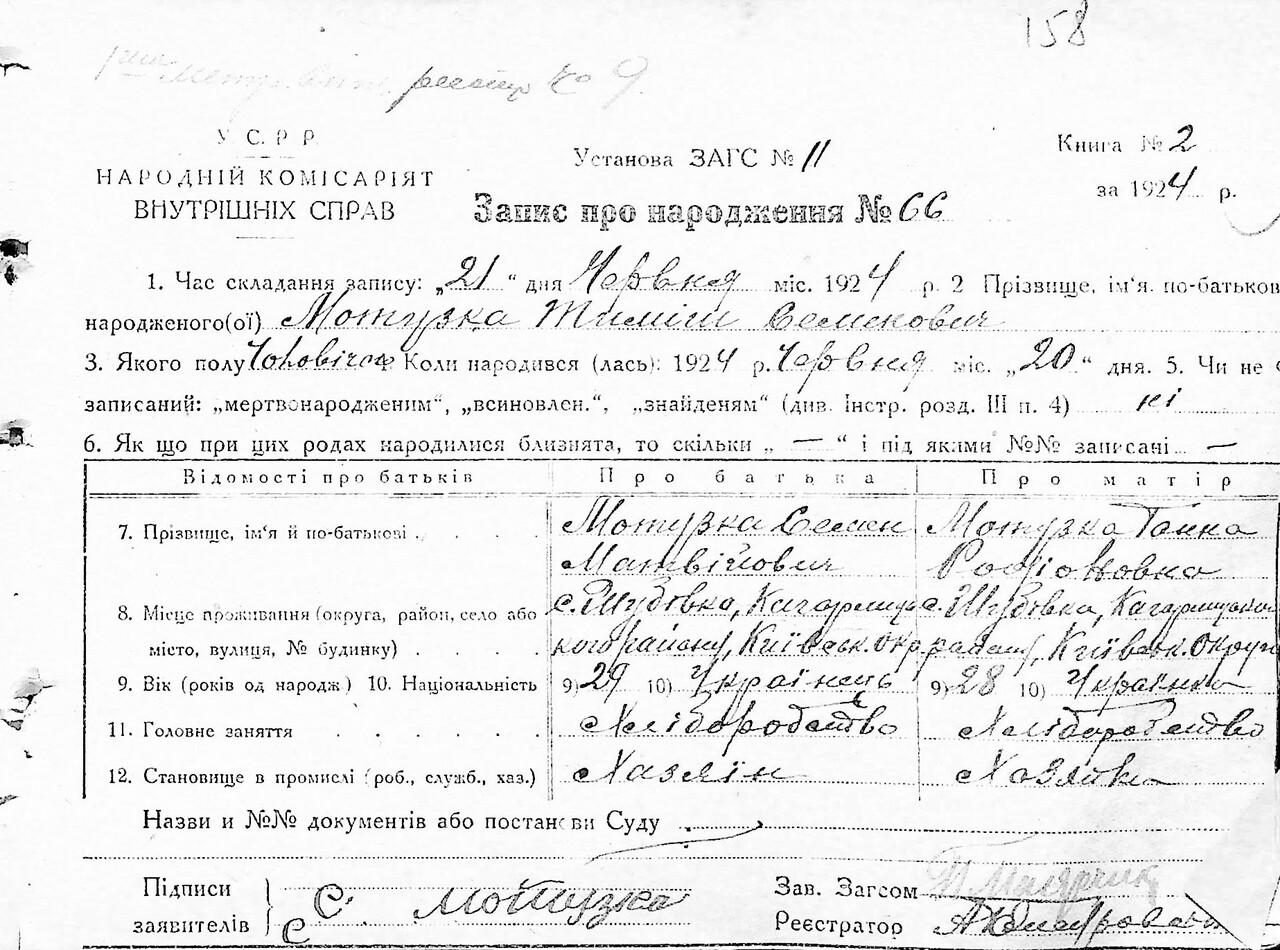 158
реєстр № 9.
У. С. Р. Р.
НАРОДНІЙ КОМІСАРІЯТ
ВНУТРІШНІХ СПРАВ
Установа ЗАГС № 11
Книга № 2
за 1924 р.
Запис про народження № 66
1. Час складання запису: „21“ дня Червня міс. 1924 р. 2 Прізвище, ім'я. по-батькові
народженого(ої) Мотузка Тиміш Семенович
3. Якого полу Чоловіча 4. Коли народився (лась): 1924 р. Червня міс. „20“ дня. 5. Чи не
записаний: „мертвонародженим“, „всиновлен.“, „знайденям“ (див. Інстр. розд. III п. 4) ні
6. Як що при цих родах народилися близнята, то скільки „ — “ і під якими №№ записані —
Відомості про батьків Про батька Про матір
7. Прізвище, ім'я й по-батькові Мотузка Семен Мотузка Ганна
Матвійович Родіоновна
8. Місце проживання (округа, район, село або с. Шубовка, Кагарлиць с. Шубовка, Кагарлицьк.
місто, вулиця, № будинку) кого району, Київськ. окр. району, Київськ. Округи
9. Вік (років од народж) 10. Національність 9) 29 10) Українець 9) 28 10) Українка
11. Головне заняття Хліборобство Хліборобство
12. Становище в промислі (роб., служб., хаз.) Хазяїн Хозяйка
Назви и №№ документів або постанови Суду
Підписи
заявителів
С. Мотузка
С
Зав. Загсом
Реєстратор